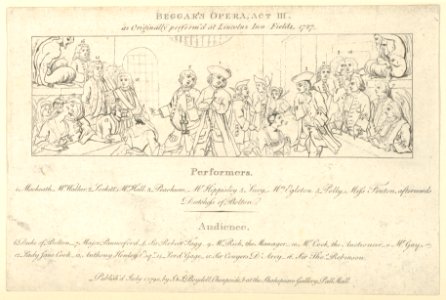 BEGGAR'S OPERA, ACT III.
as Originally perform'd at Lincolns Inn Fields, 1727.
Performers.
1. Macheath, Mr. Walker. 2. Lockitt, Mr. Hall. 3. Peachum, Mr. Hippisley. 4. Lucy, Mrs. Egleton. 5. Polly, Miss Fenton, afterwards
Dutchess of Bolton.
Audience.
6. Duke of Bolton. 7. Major Pauncford. 8. Sir Robert Fagg. 9. Mr. Rich, the Manager. 10. Mr. Cock, the Auctioneer. 11. Mr. Gay.
12. Lady Jane Cook. 13. Anthony Henley Esqr. 14. Lord Gage. 15. Sir Conyers D'Arcy. 16. Sir Thos. Robinson.
Publish'd July 1, 1790, by J. & J. Boydell, Cheapside, & at the Shakspeare Gallery, Pall Mall.